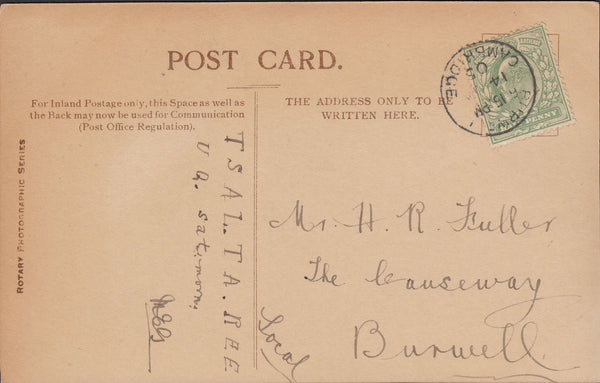 POST CARD.
For Inland Postage only, this Space as well as
the Back may now be used for Communication
(Post Office Regulation).
THE ADDRESS ONLY TO BE
WRITTEN HERE.
ROTARY PHOTOGRAPHIC SERIES
T S A L . T A . R E E
Mr. H. R. Fuller
The Causeway
Burwell
Local
CAMBRIDGE
14
05
PENNY